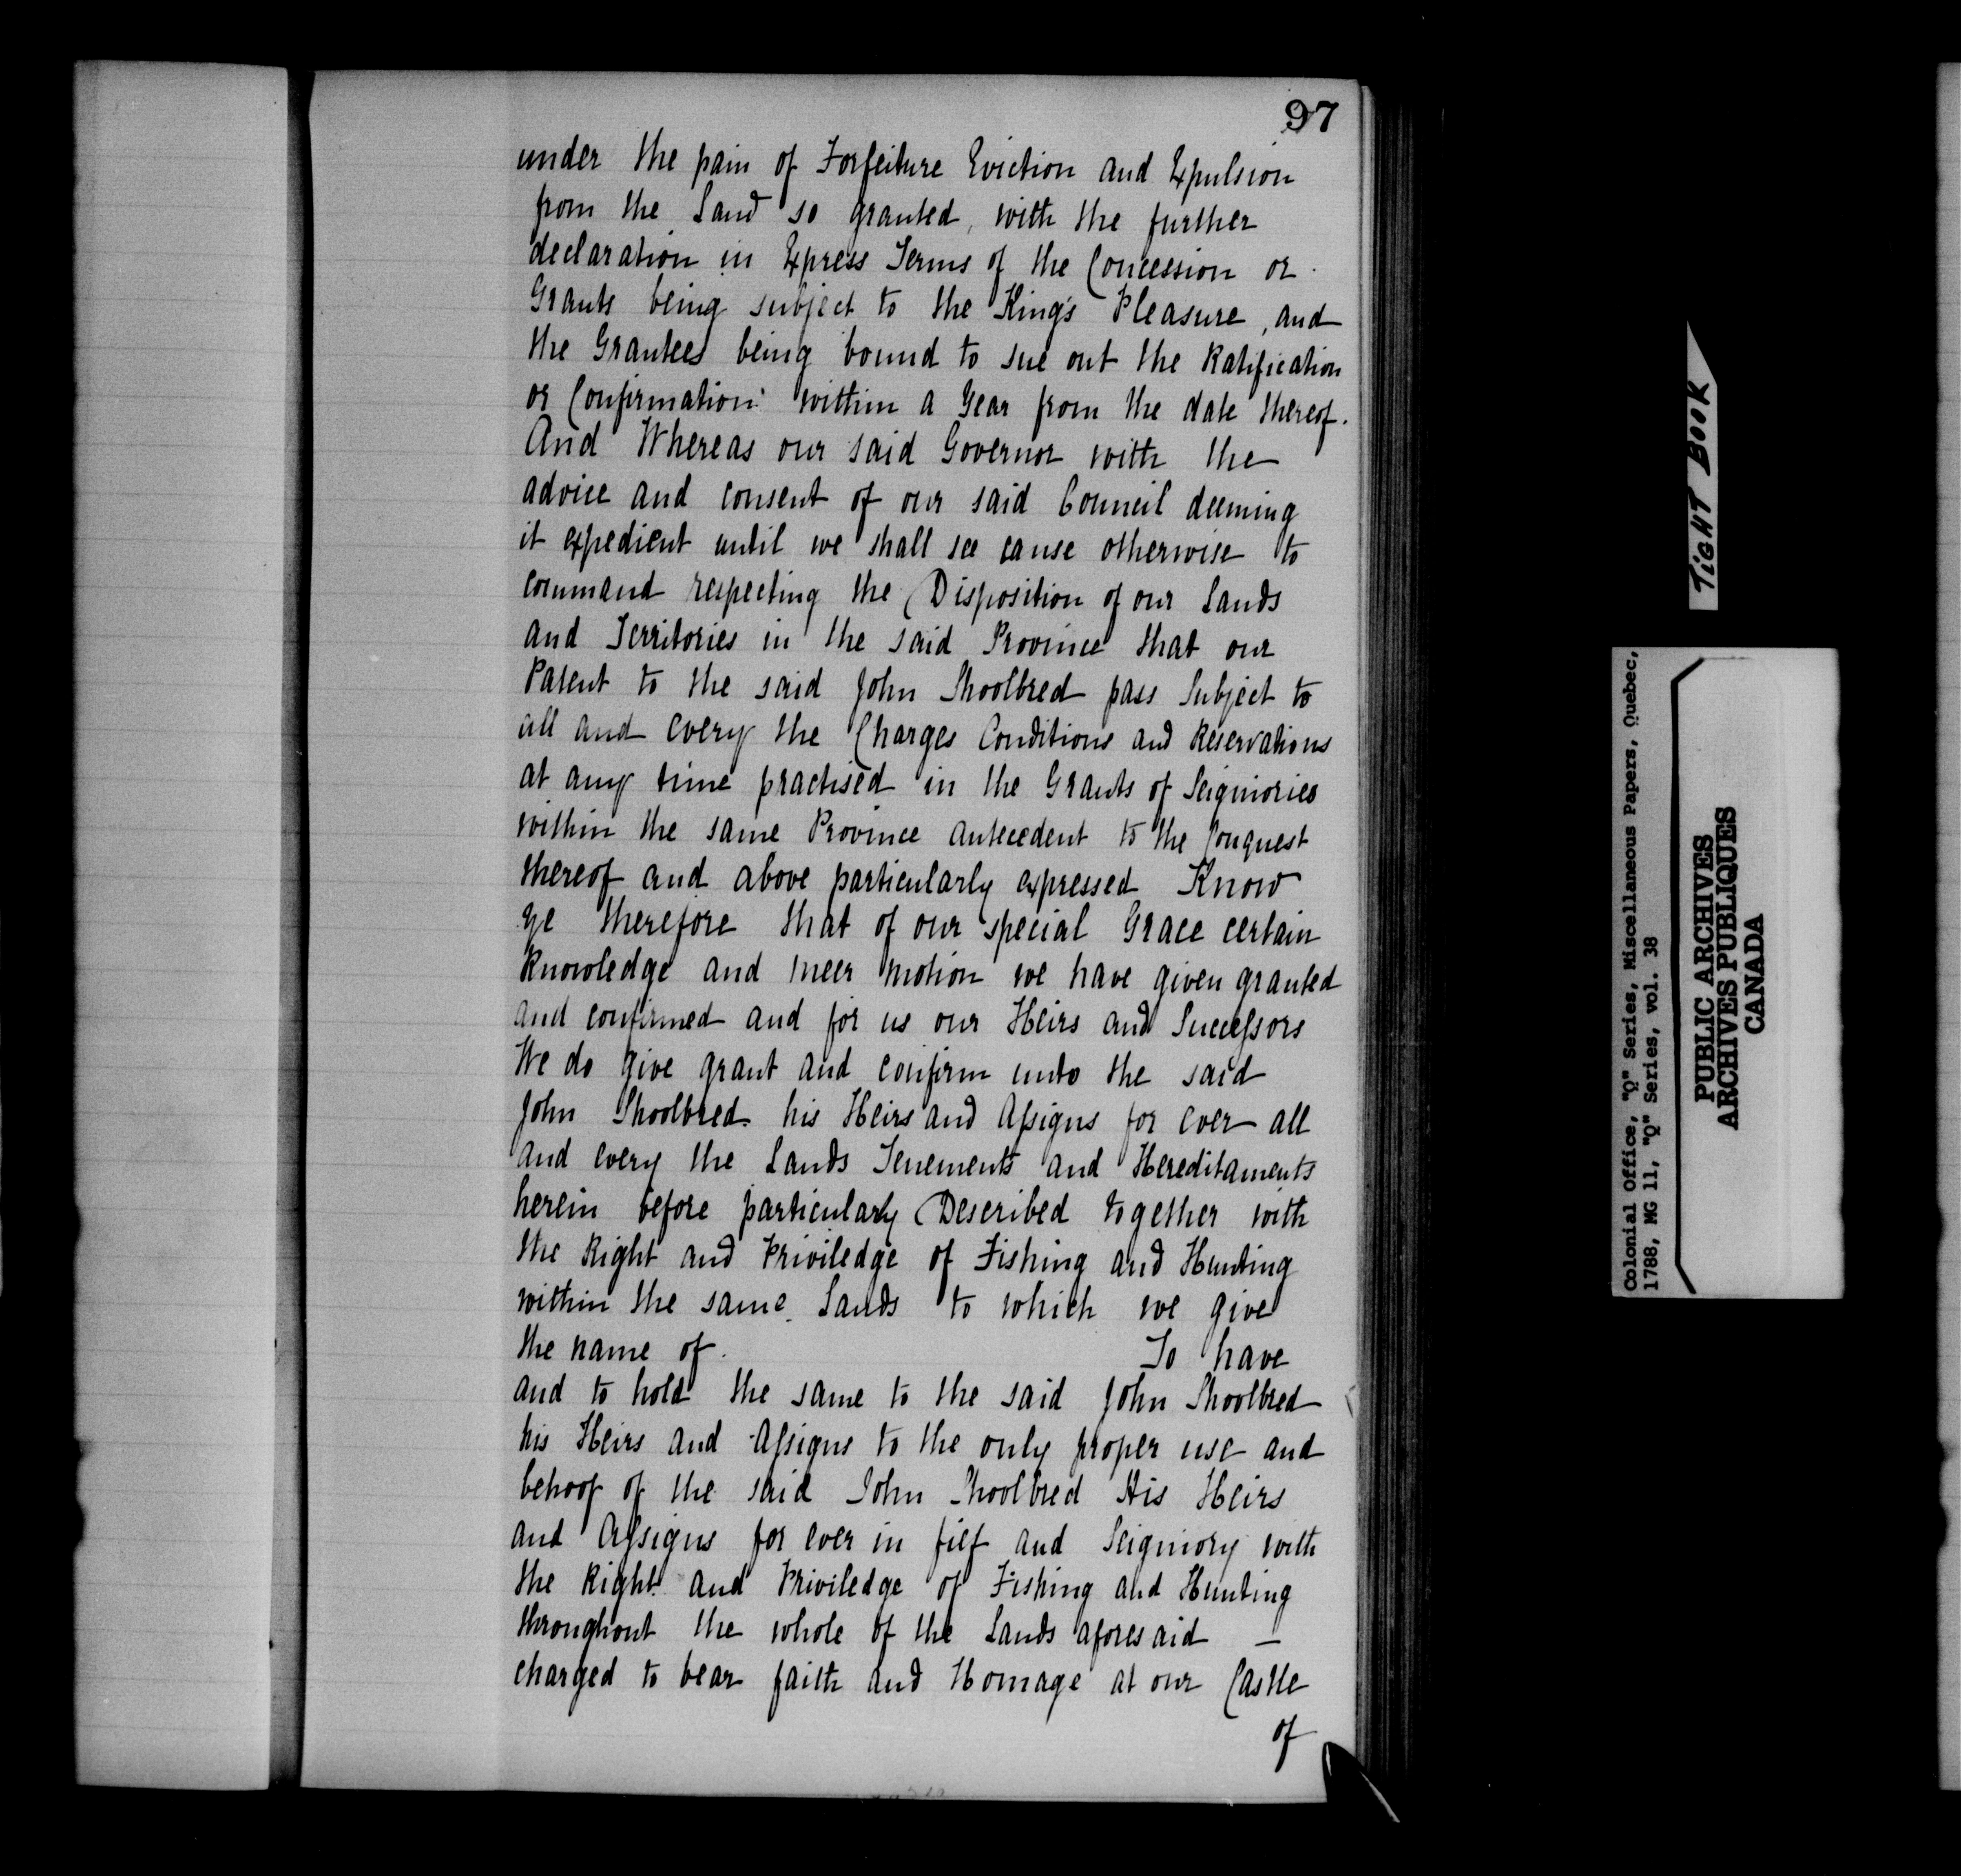 97
under the pain of Forfeiture Eviction and Expulsion
from the Land so granted, with the further
declaration in Express Terms of the Concession or
Grants being subject to the King's Pleasure, and
the Grantees being bound to sue out the Ratification
or Confirmation within a Year from the date thereof.
And Whereas our said Governor with the
advice and consent of our said Council deeming
it expedient until we shall see cause otherwise to
command respecting the Disposition of our Lands
and Territories in the said Province that our
Patent to the said John Shoolbred pass Subject to
all and every the Charges Conditions and Reservations
at any time practised in the Grants of Seigniories
within the same Province antecedent to the Conquest
thereof and above particularly expressed Know
ye therefore that of our special Grace certain
knowledge and meer motion we have given granted
and confirmed and for us our Heirs and Successors
We do give grant and confirm unto the said
John Shoolbred his Heirs and Assigns for ever all
and every the Lands Tenements and Hereditaments
herein before particularly Described together with
the Right and Priviledge of Fishing and Hunting
within the same Lands to which we give
the name of. To have
and to hold the same to the said John Shoolbred
his Heirs and Assigns to the only proper use and
behoof of the said John Shoolbred His Heirs
and Assigns for ever in fief and Seigniory with
the Right and Priviledge of Fishing and Hunting
throughout the whole of the Lands aforesaid —
charged to bear faith and Homage at our Castle
of
TIGHT BOOK
Colonial Office, "Q" Series, Miscellaneous Papers, Quebec,
1788, MG 11, "Q" Series, vol. 38
PUBLIC ARCHIVES
ARCHIVES PUBLIQUES
CANADA